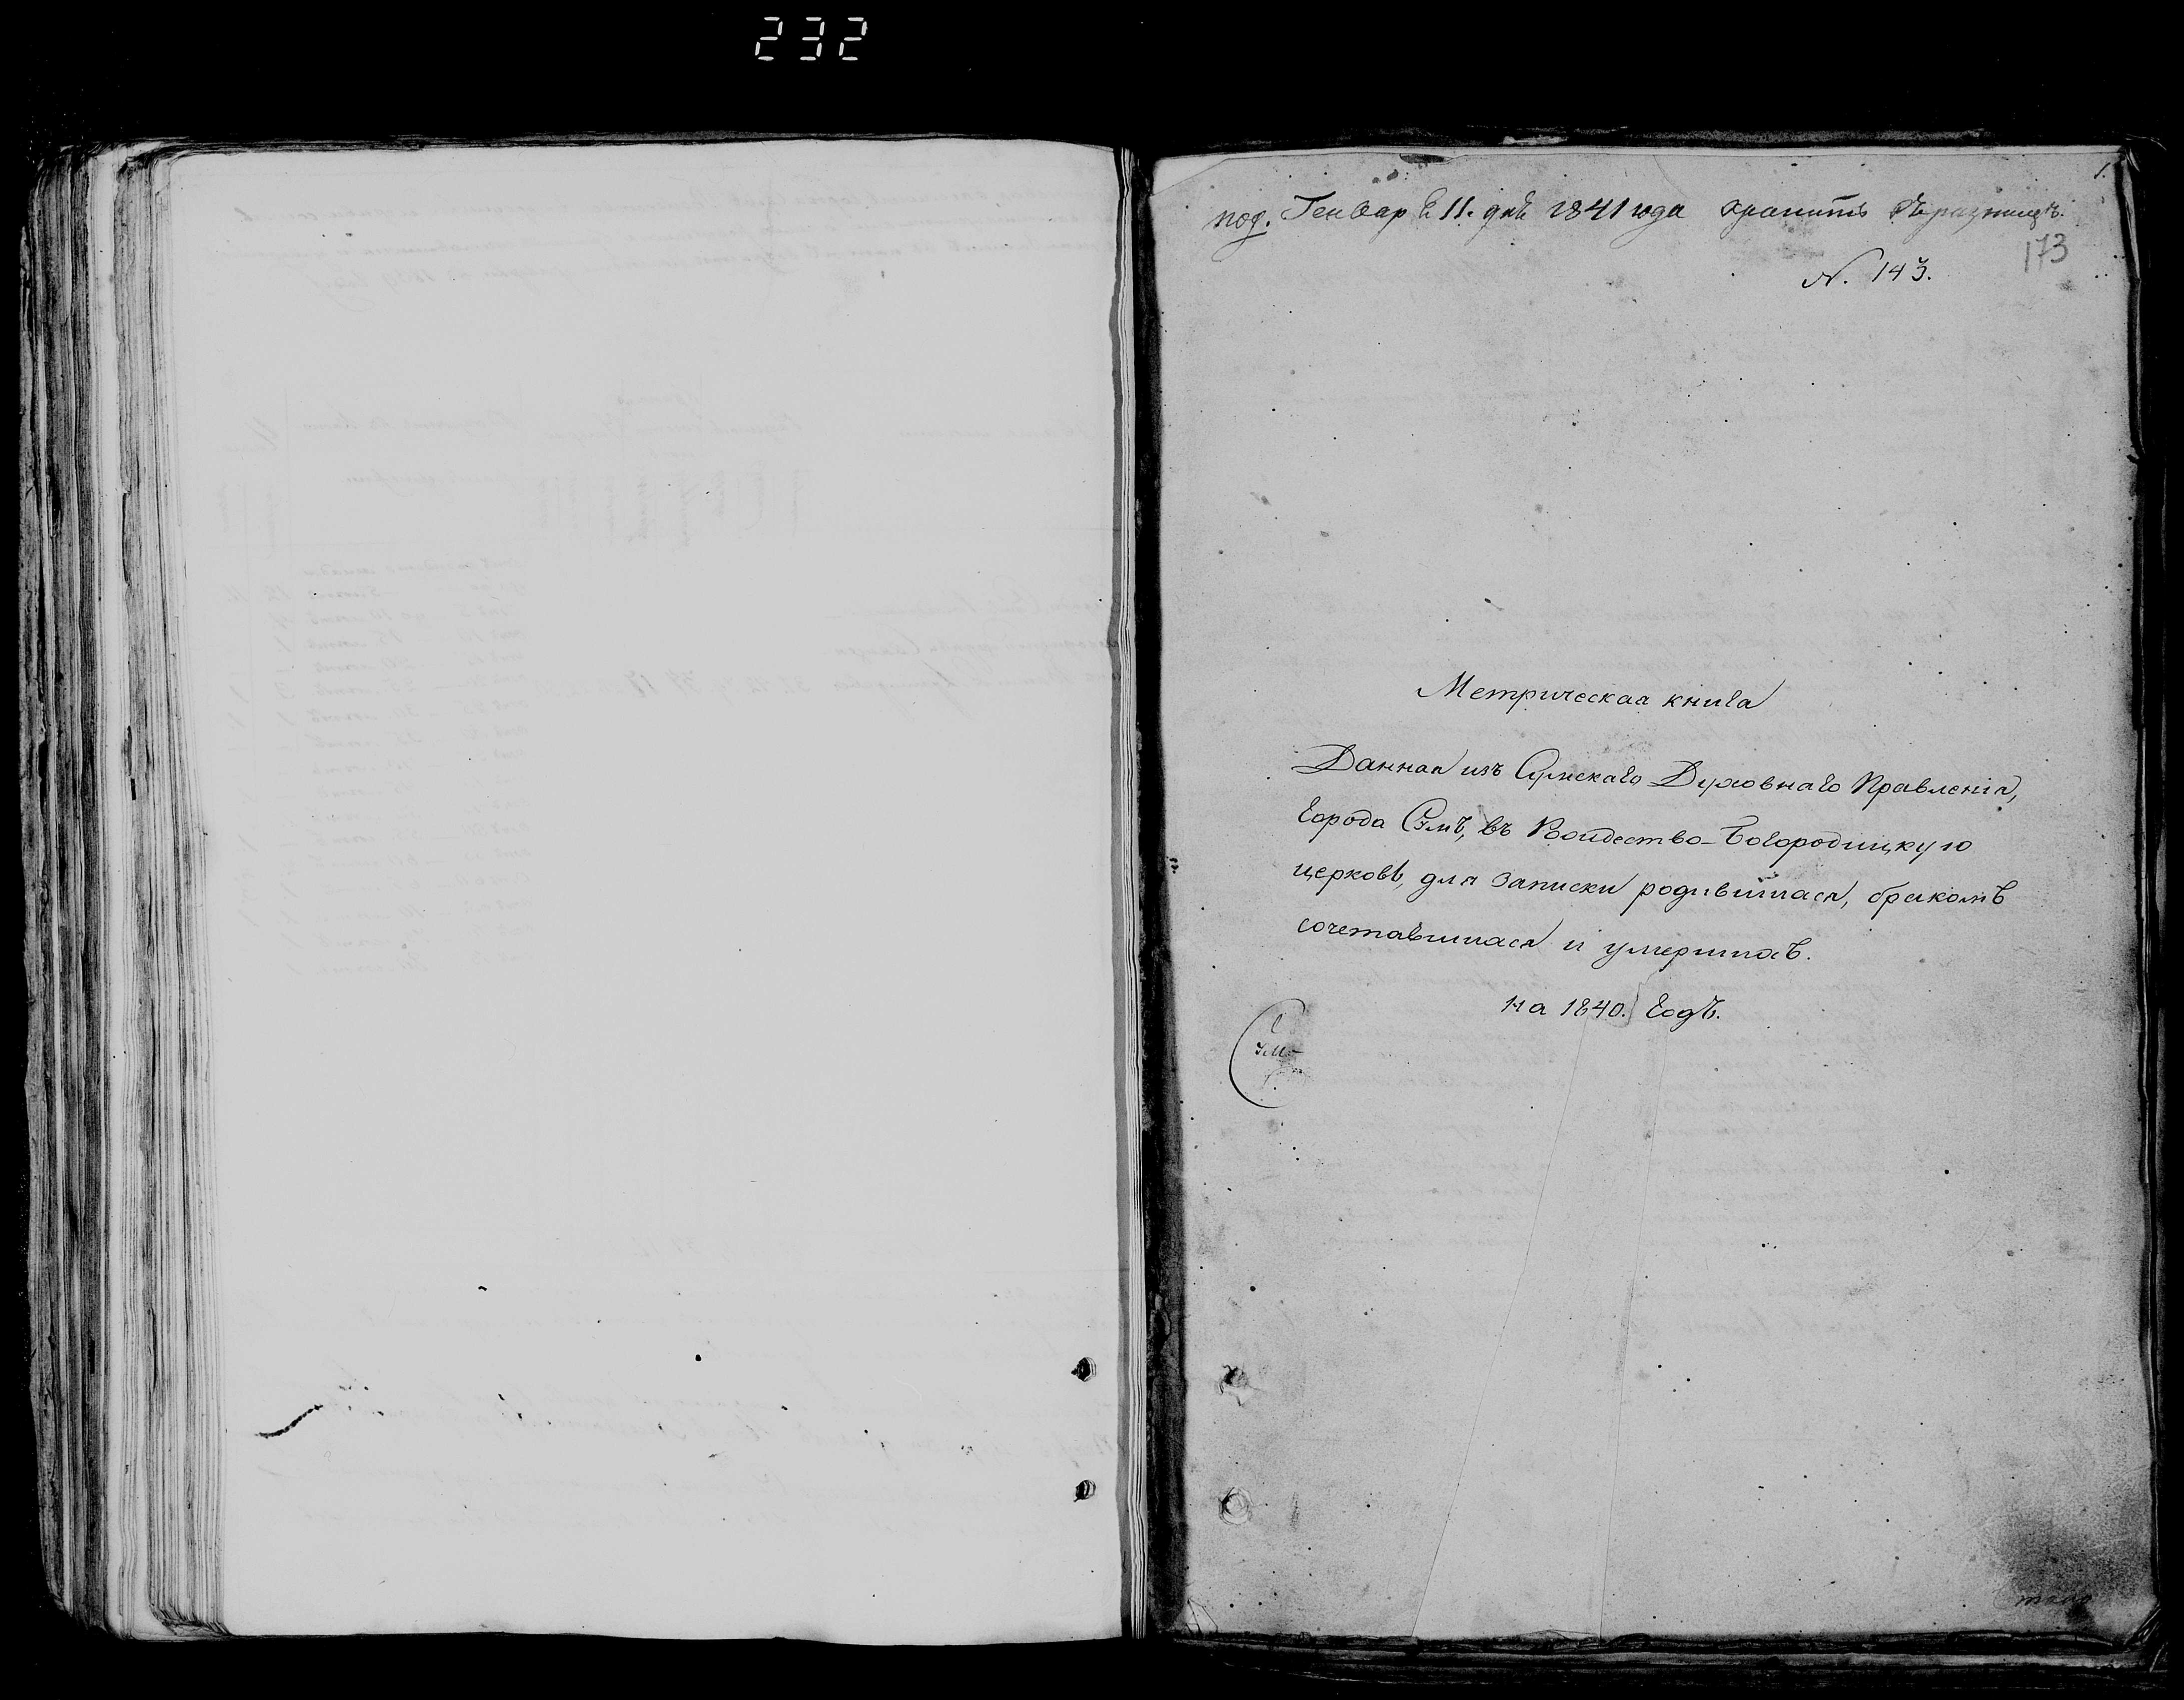 232
1.
под. Генвар ѣ 11. днѣ 1841 года хранить въ ризницѣ.
173
N. 143.
Метрическая книга
Данная изъ Сумскаго Духовнаго Правленія,
города Сумъ, въ Рождество-Богородицкую
церковь, для записки родившихся, бракомъ
сочетавшихся и умершихъ.
на 1840. годъ.
Сум-